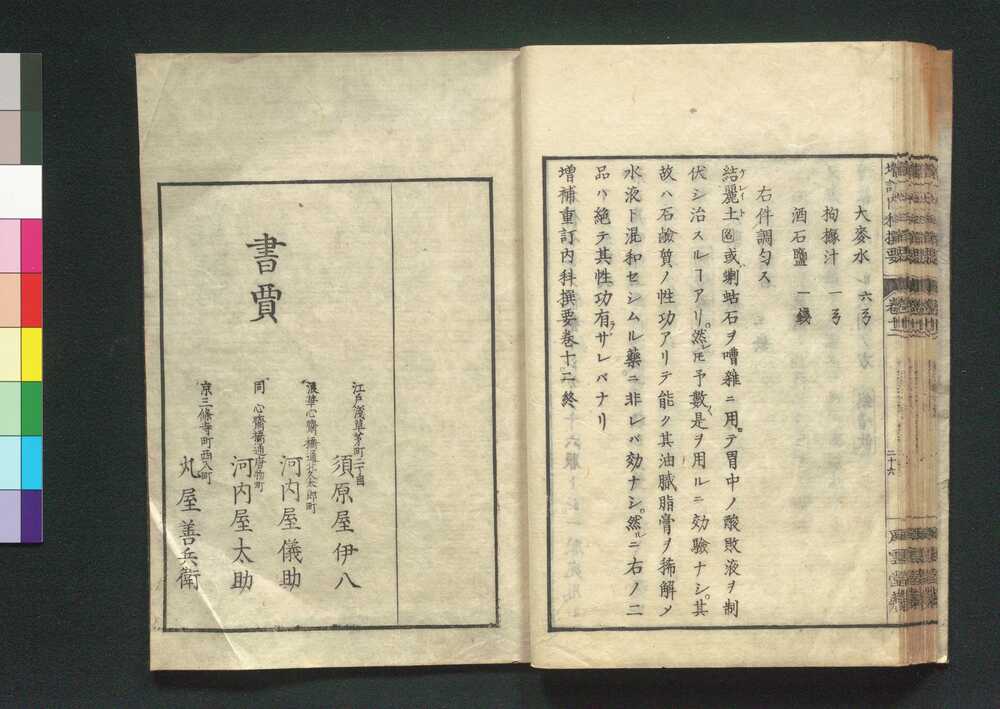 大麥水 六弓
拘櫞汁 一弓
酒石鹽 一錢
右件調匀ス
結麗土図或蝲蛄石ヲ嘈雜ニ用テ胃中ノ酸敗液ヲ制
ケレイト
伏シ治スルヿアリ然レ𪜈予數〻是ヲ用ルニ効驗ナシ其
故ハ石鹼質ノ性功アリテ能ク其油膩脂膏ヲ稀解メ
水液ト混和セシムル藥ニ非レバ効ナシ然ルニ右ノ二
品ハ絶テ其性功有ラザレバナリ
増補重訂内科撰要卷十二終
二十六
書賈
江戸淺草茅町二丁目
須原屋伊八
浪華心齋橋通北久太郎町
河内屋儀助
同 心齋橋通唐物町
河内屋太助
京三條寺町西入町
丸屋善兵衛